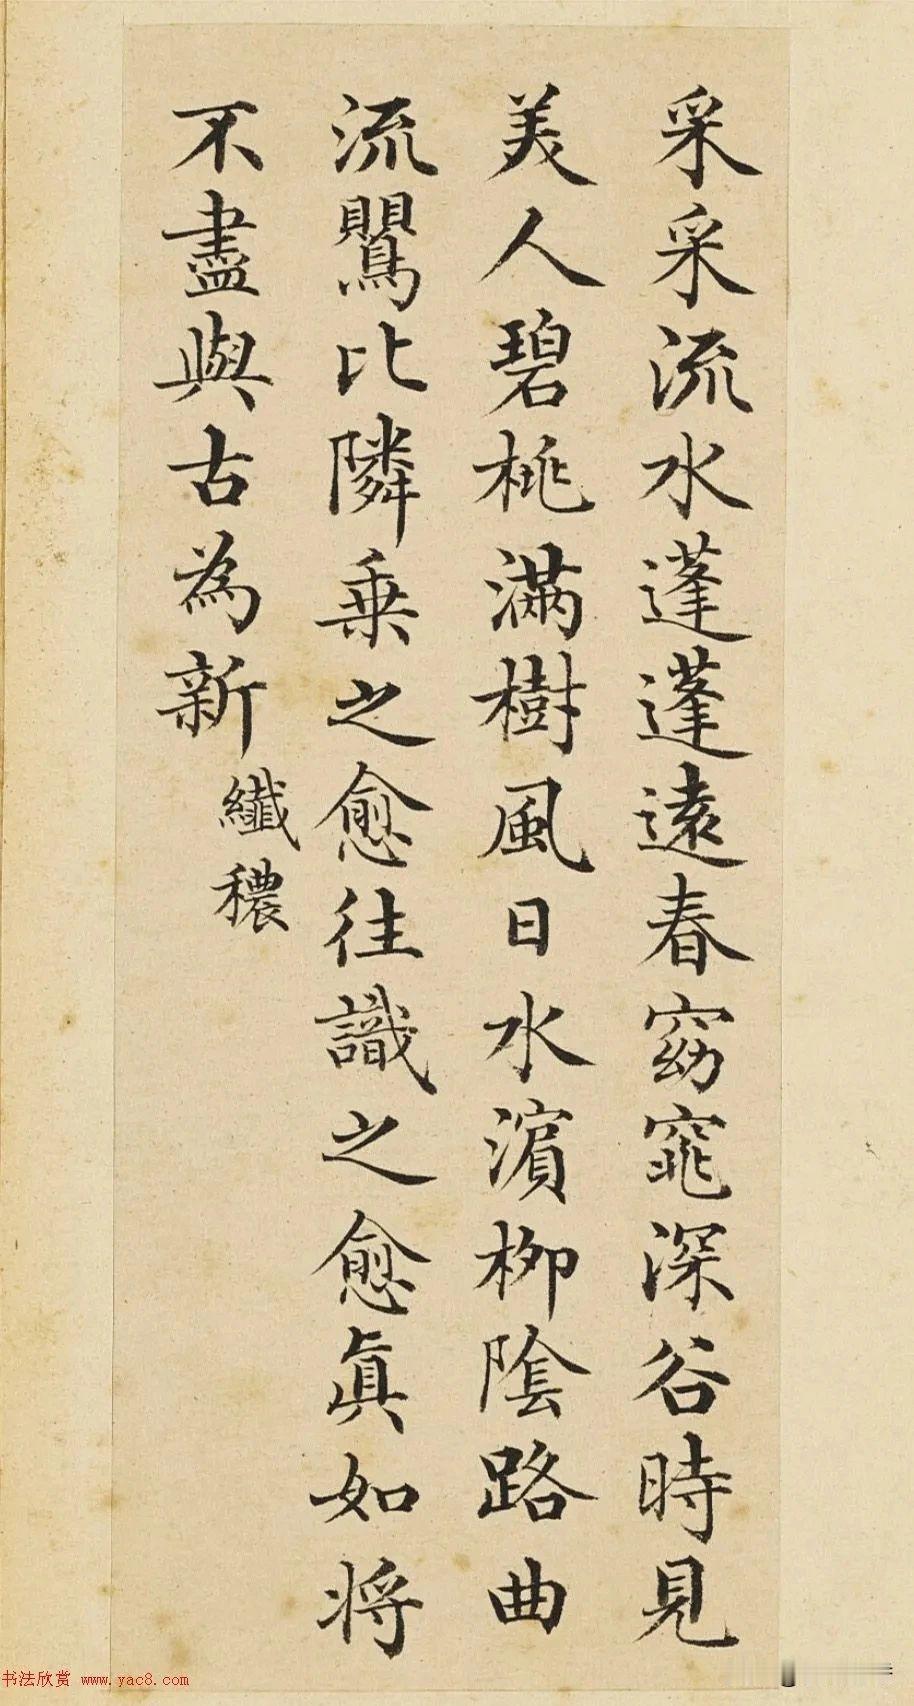 采采流水蓬蓬遠春窈窕深谷時見
美人碧桃滿樹風日水濵柳陰路曲
流鸎比隣乗之愈往識之愈眞如将
不盡與古為新
纖穠
书法欣赏 www.yac8.com